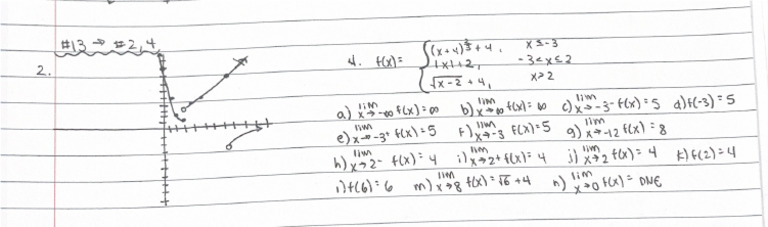 #13 → #2, 4
2.
4. f(x) = { (x+4)^{2/3} + 4, x ≤ -3
|x| + 2, -3 < x ≤ 2
√(x-2) + 4, x > 2
a) lim x→-∞ f(x) = ∞ b) lim x→∞ f(x) = ∞ c) lim x→-3⁻ f(x) = 5 d) f(-3) = 5
e) lim x→-3⁺ f(x) = 5 f) lim x→-3 f(x) = 5 g) lim x→-12 f(x) = 8
h) lim x→2⁻ f(x) = 4 i) lim x→2⁺ f(x) = 4 j) lim x→2 f(x) = 4 k) f(2) = 4
l) f(6) = 6 m) lim x→8 f(x) = √6 + 4 n) lim x→0 f(x) = DNE